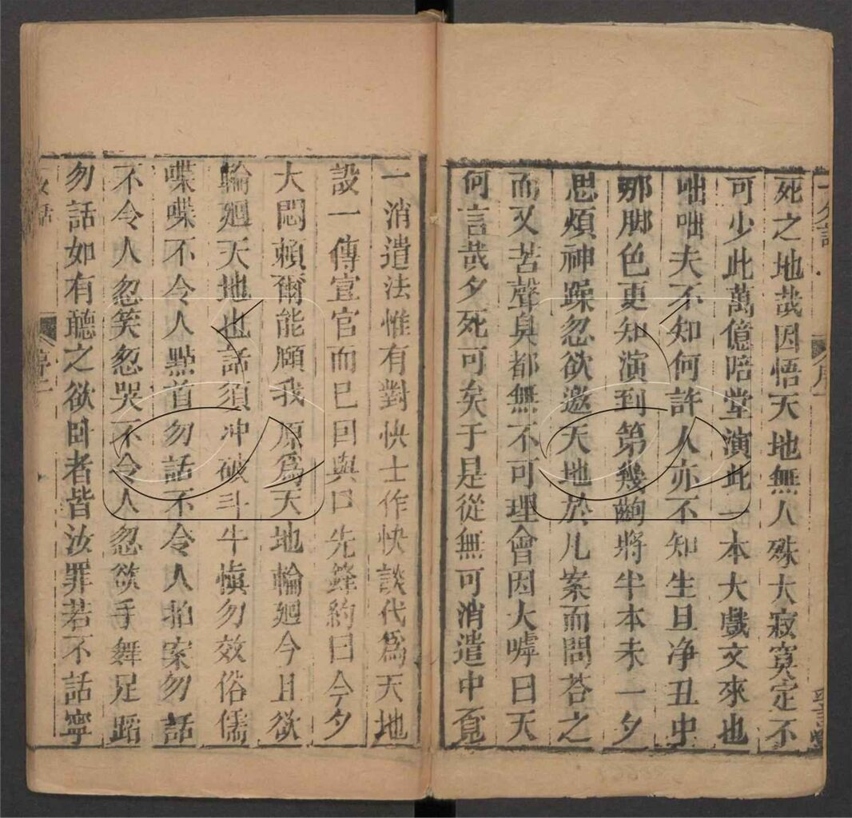 死之地哉因悟天地無人殊大寂寞定不
可少此萬億陪堂演此一本大戲文來也
咄咄夫不知何許人亦不知生旦净丑中
那脚色更知演到第幾齣將半本未一夕
思煩神躁忽欲邀天地於几案而問荅之
而又苦聲臭都無不可理會因大嘑曰天
何言哉夕死可矣于是從無可消遣中覔
一消遣法惟有對快士作快談代爲天地
設一傳宣官而已因與口先鋒約曰今夕
大悶賴爾能願我原爲天地輪廻今且欲
輪廻天地也話須冲破斗牛愼勿效俗儒
喋喋不令人㸃首勿話不令人拍案勿話
不令人忽笑忽哭不令人忽欲手舞足蹈
勿話如有聽之欲卧者皆汝罪若不話寧
夕話 序二